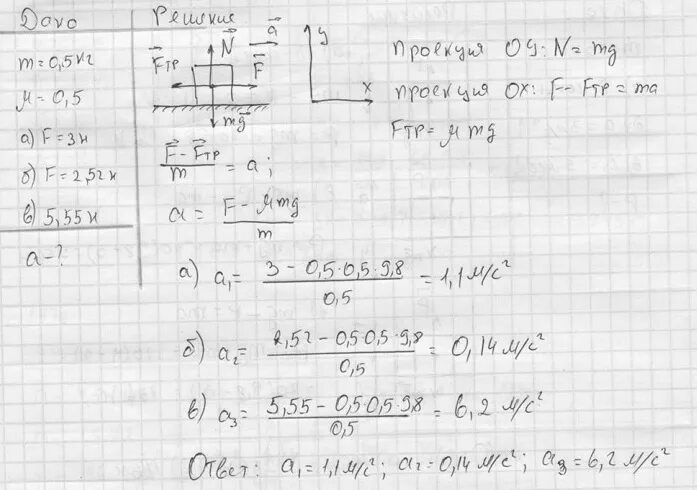 Дано
m = 0,5 кг
μ = 0,5
а) F = 3 н
б) F = 2,52 н
в) 5,55 н
a - ?
Решение
N⃗ a⃗
F⃗тр F⃗
mg⃗
y
x
проекция OY: N = mg
проекция OX: F - Fтр = ma
Fтр = μ mg
(F⃗ - F⃗тр)/m = a ;
a = (F - μmg)/m
а) a₁ = (3 - 0,5·0,5·9,8)/0,5 = 1,1 м/с²
б) a₂ = (2,52 - 0,5·0,5·9,8)/0,5 = 0,14 м/с²
в) a₃ = (5,55 - 0,5·0,5·9,8)/0,5 = 6,2 м/с²
Ответ: a₁ = 1,1 м/с²; a₂ = 0,14 м/с²; a₃ = 6,2 м/с²